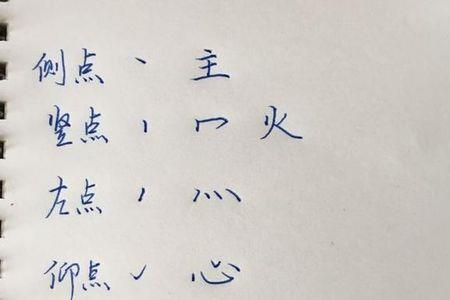 侧点 丶 主
竖点 冖 火
左点 灬
仰点 心